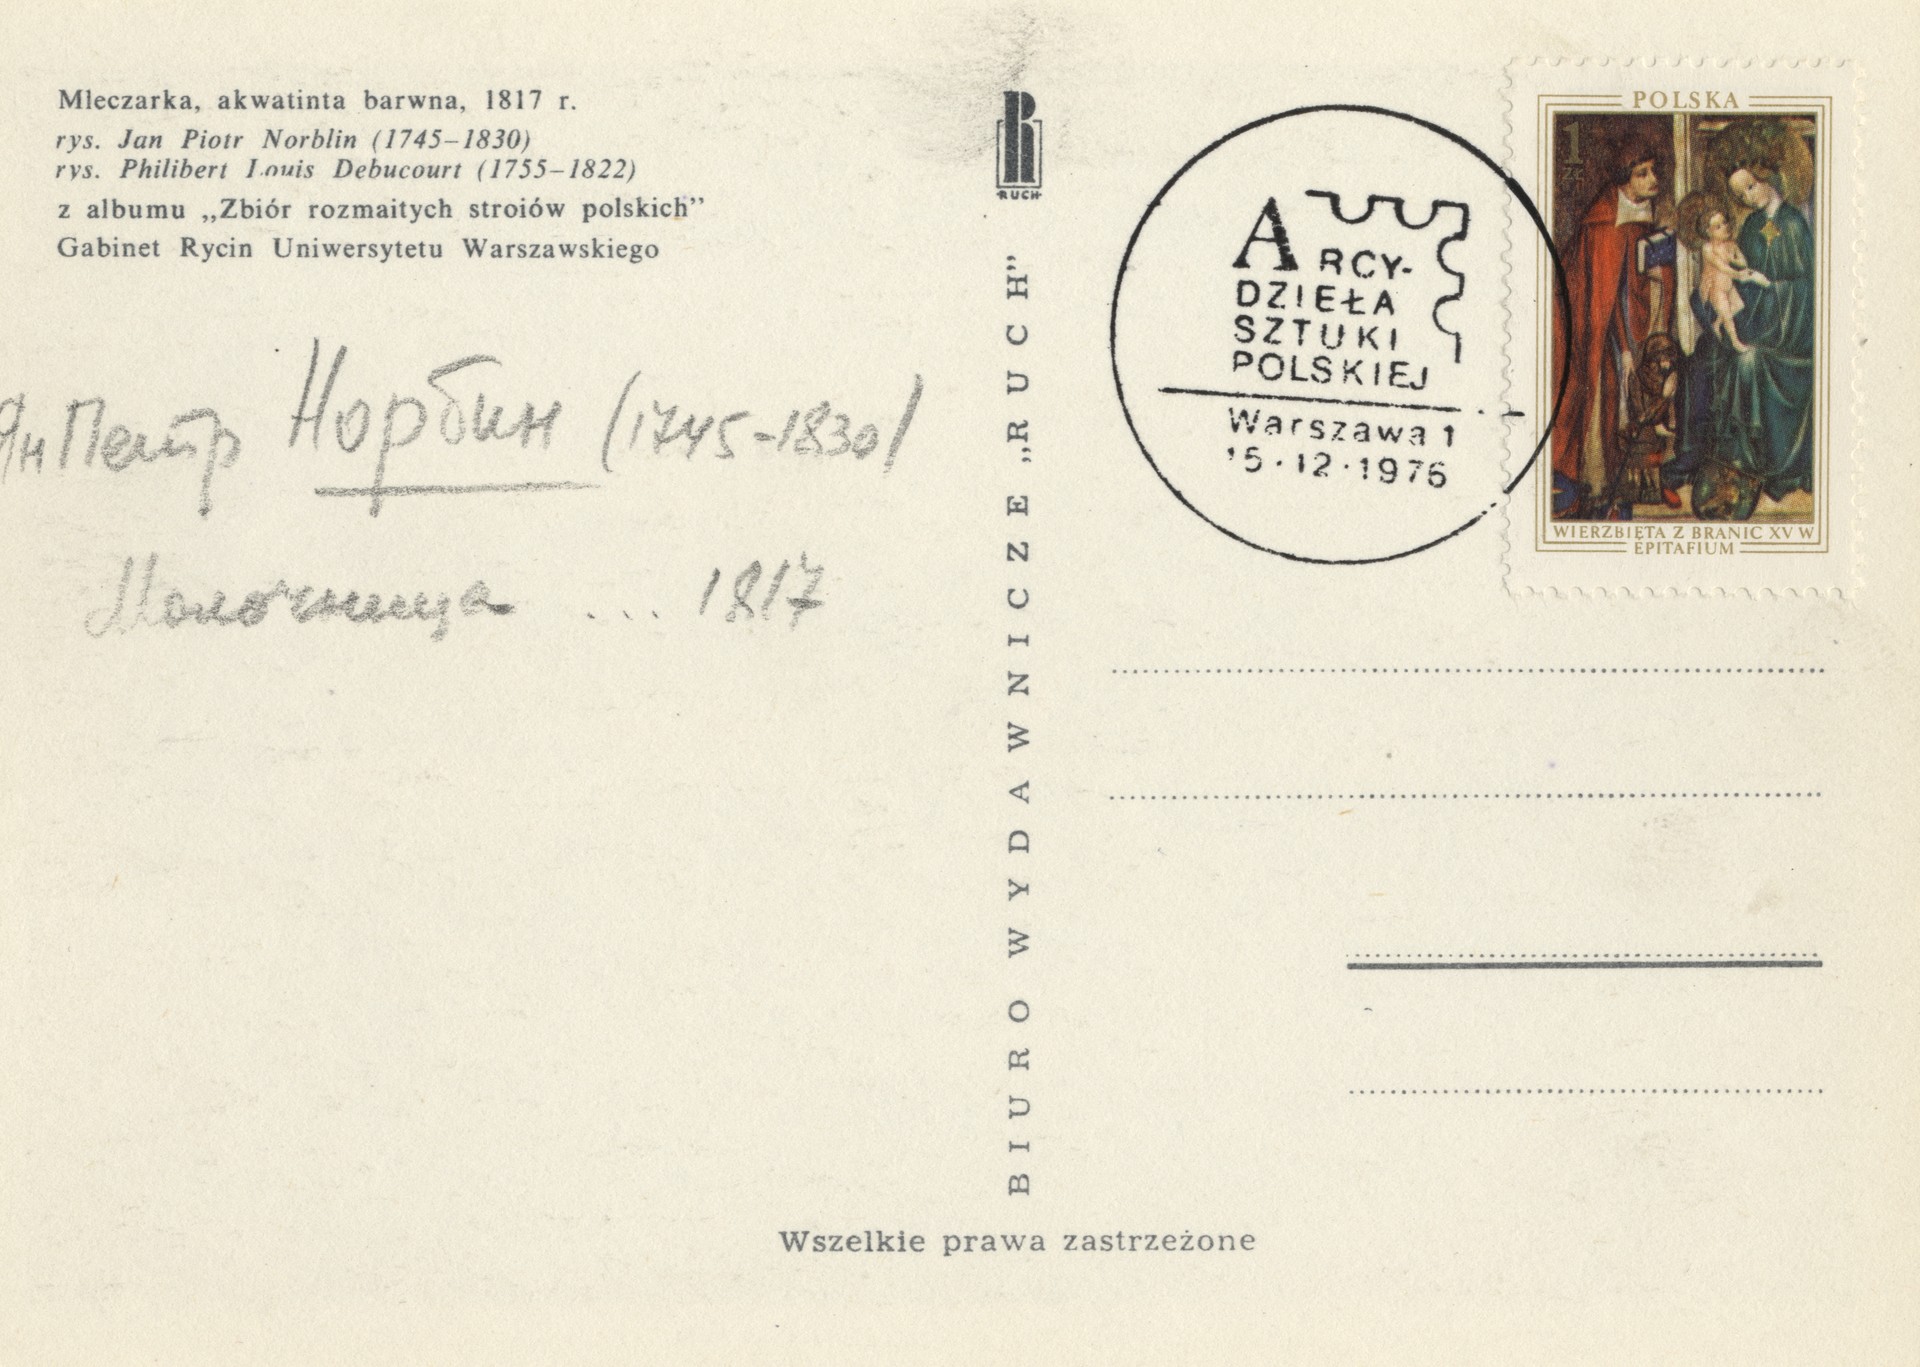 Mleczarka, akwatinta barwna, 1817 r.
rys. Jan Piotr Norblin (1745–1830)
rys. Philibert Louis Debucourt (1755–1822)
z albumu „Zbiór rozmaitych stroiów polskich”
Gabinet Rycin Uniwersytetu Warszawskiego
Ян Петр Норбин (1745-1830)
Молочница ... 1817
RUCH
BIURO WYDAWNICZE „RUCH”
ARCY-
DZIEŁA
SZTUKI
POLSKIEJ
Warszawa 1
15·12·1976
POLSKA
1
ZŁ
WIERZBIĘTA Z BRANIC XV W
EPITAFIUM
Wszelkie prawa zastrzeżone